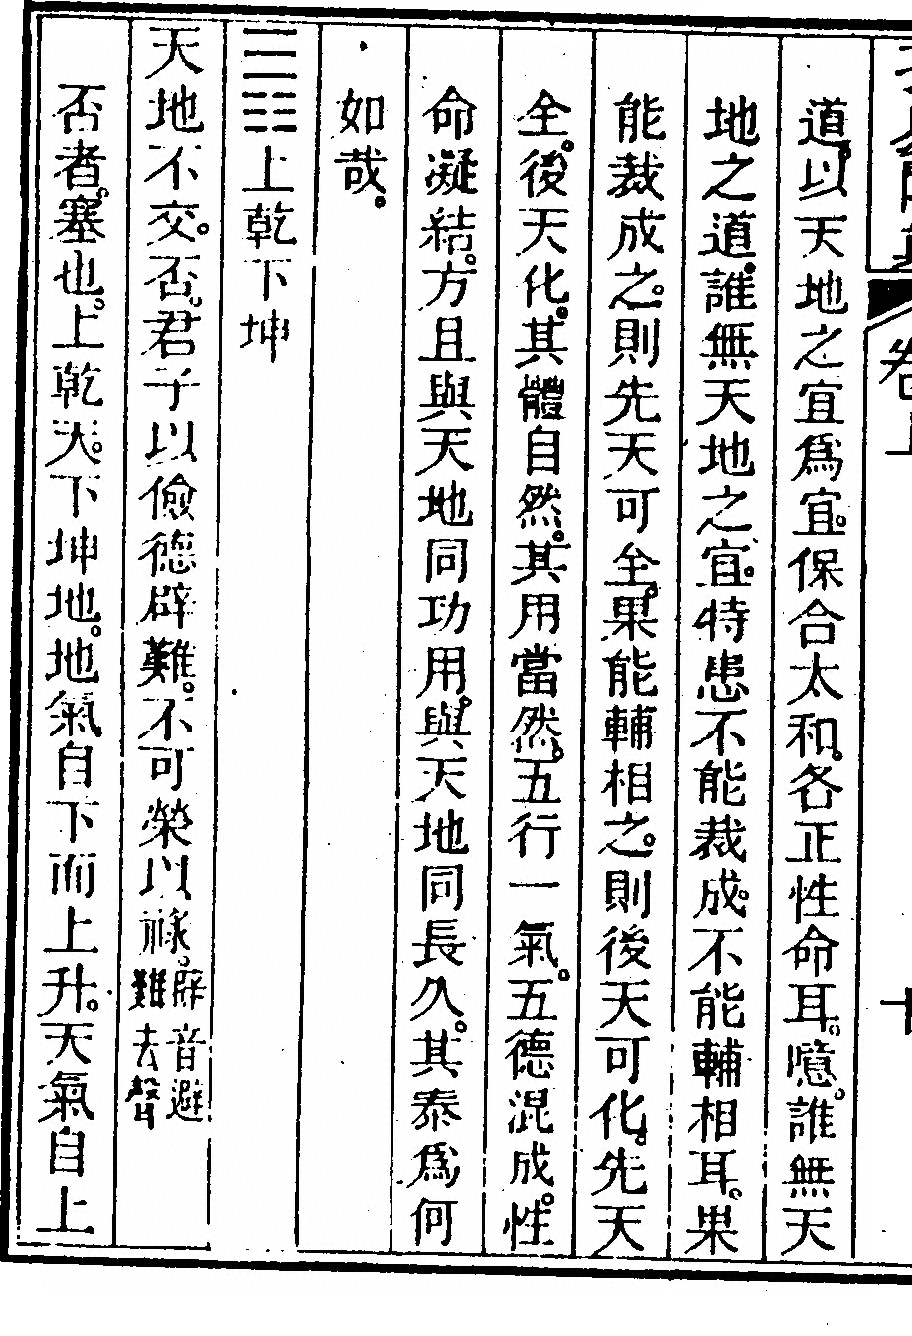 卷上
十
道。以天地之宜爲宜。保合太和。各正性命耳。噫。誰無天
地之道。誰無天地之宜。特患不能裁成。不能輔相耳。果
能裁成之。則先天可全。果能輔相之。則後天可化。先天
全。後天化。其體自然。其用當然。五行一氣。五德混成。性
命凝結。方且與天地同功用。與天地同長久。其泰爲何
如哉。
☰☷上乾下坤
天地不交。否。君子以儉德辟難。不可榮以祿。辟音避難去聲
否者。塞也。上乾天。下坤地。地氣自下而上升。天氣自上